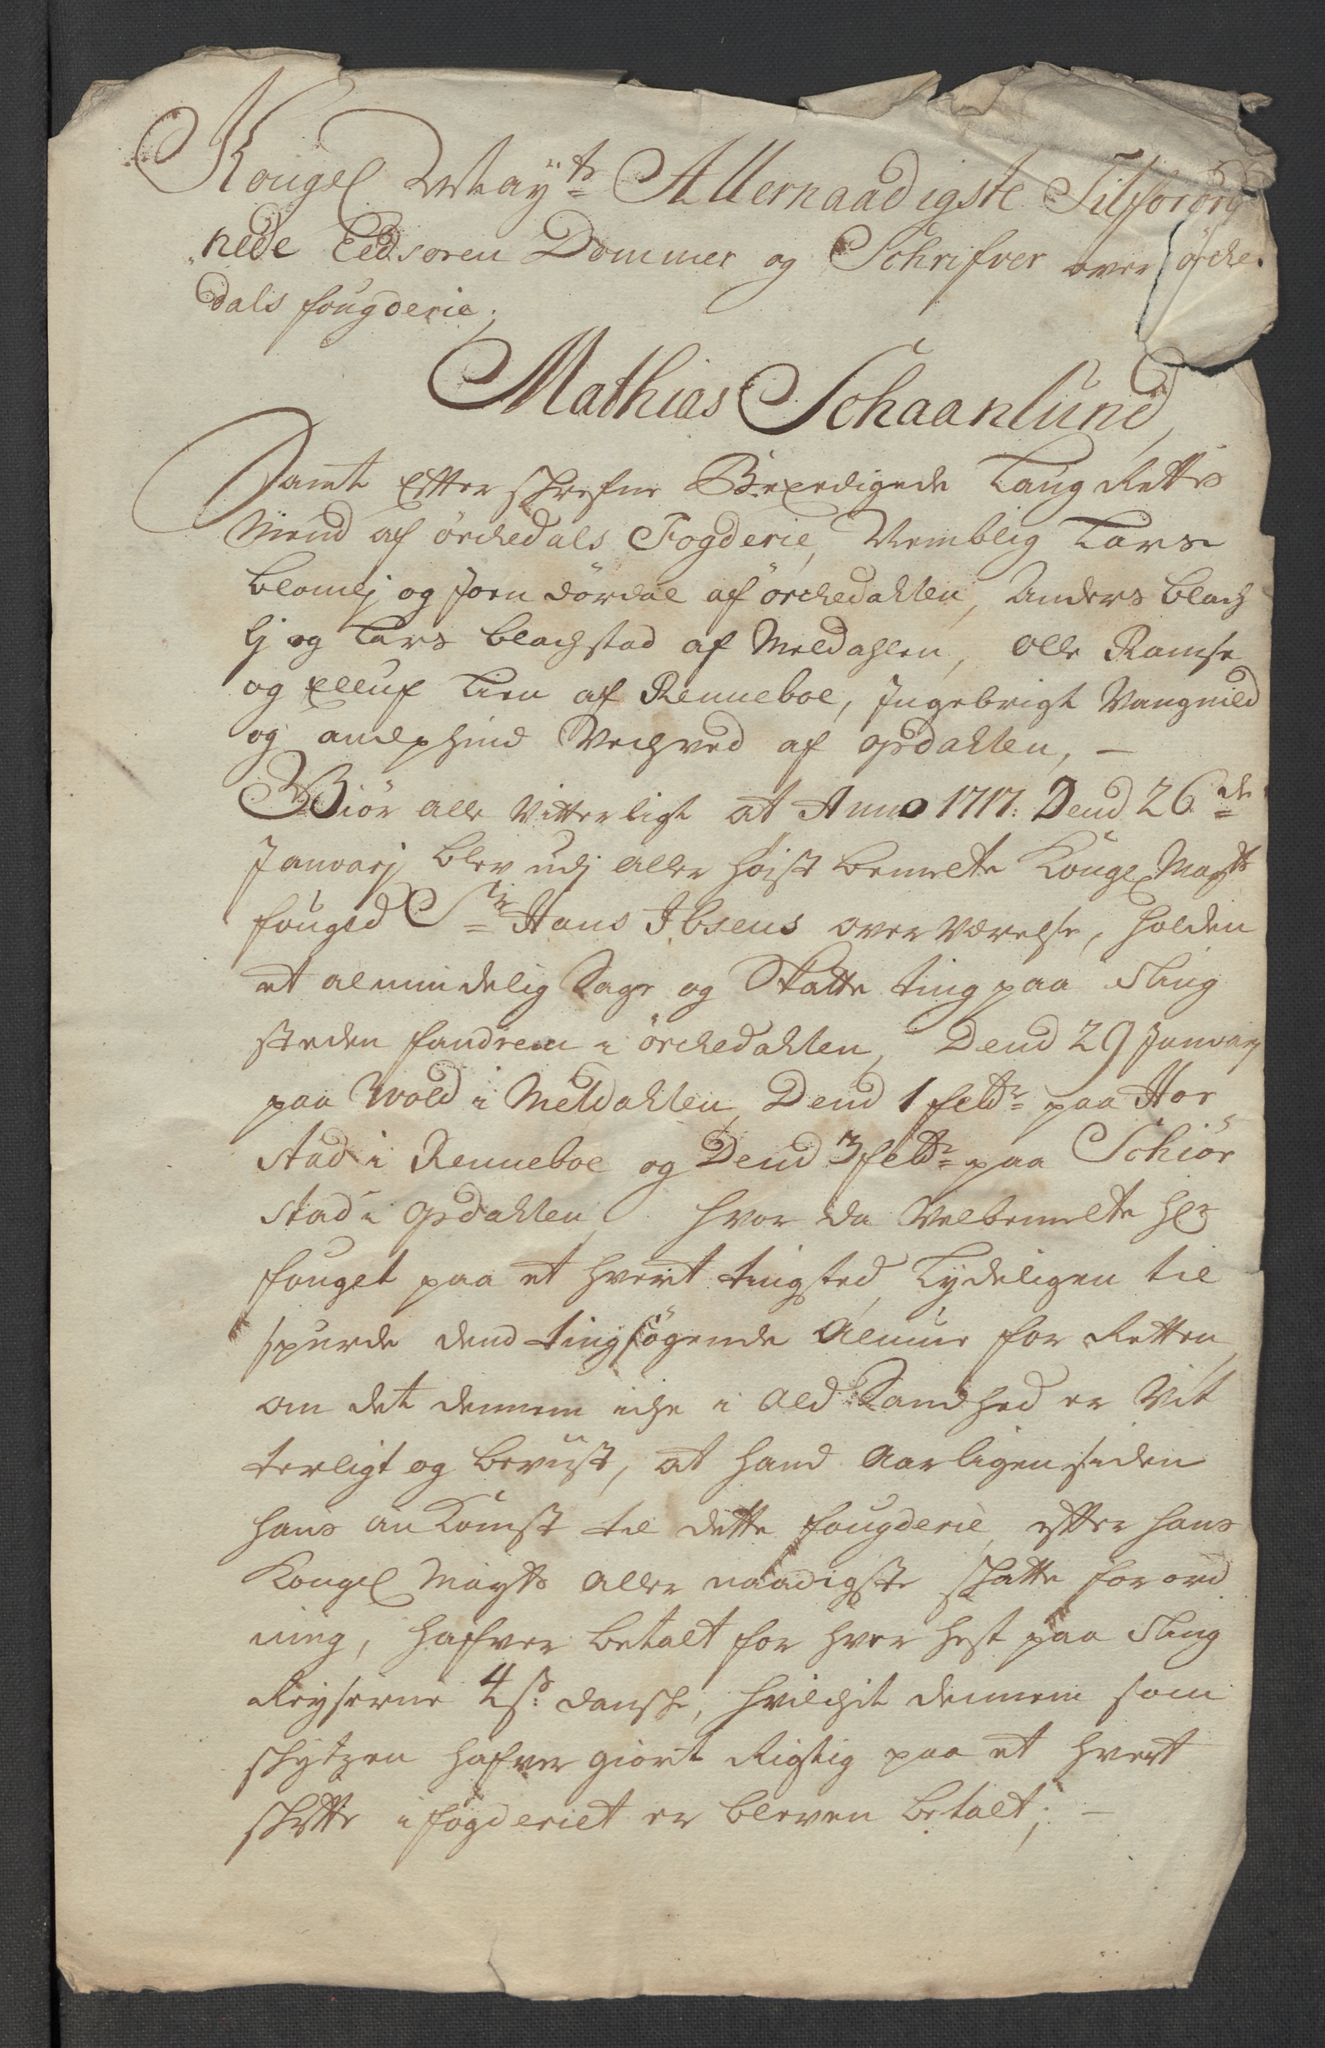 Kongel Mayts Allernaadigste Tilforord
nede Eedsoren Dommer og Schrifver over Örche
dals fougderie,
Mathias Schaanlund,
Samt Effterschrefne Beeedigede Laug Rettes
Mend af Örchedals Fogderie, Nemblig Lars
blomlj og Joen dördal af örchedahlen, Anders blach
lj og Lars blachstad af Meldahlen, Olle Ramse
og Elluf Lien af Renneboe, Ingebrigt Vangmild
og Vechved af opdahlen, -
Giör alle Vitterligt at Anno 1717: Dend 26de
Januarj blev udj aller höist bemelte Kongel Mayts
fouged Sr Hans Ibsens overværelse, holden
et almindelig Sage og Skatte ting paa Ting
steden fandrem i örchedahlen, Dend 29 Januarj
paa Wold i Meldahlen, Dend 1 febr paa Hor
stad i Renneboe og Dend 3 febr paa Schiör
stad i opdahlen, hvor da Velbemelte Hr
fouget paa et hvert tingsted, Tydeligen til
spurde dend tingsögende Almue for Retten,
om det dennem iche i Ald Sandhed er Vit
terligt og bevust, at hand Aarligen siden
hans ankomst til dette fougderie, effter hans
Kongel Mayts Aller naadigste skatte forord
ning, hafver betalt for hver hest paa Ting
Reyserne 4 s: danske, hvilchet dennem som
skytzen hafver giort Rigtig paa et hvert
skytte i fogderiet er bleven betalt; -